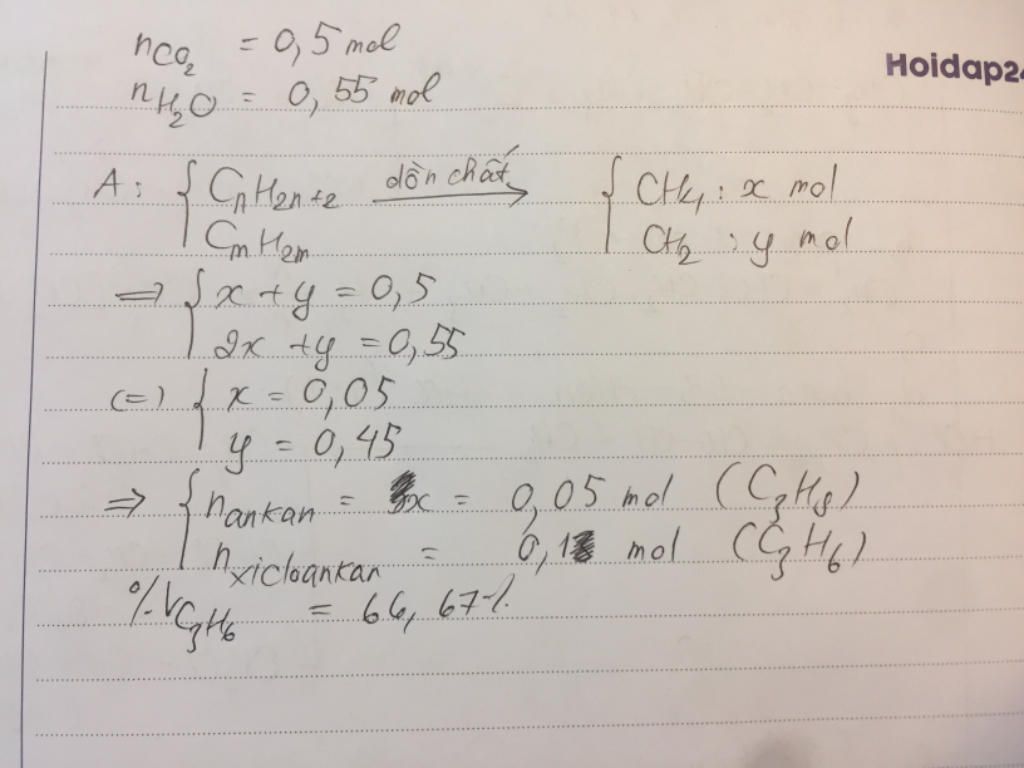 nCO₂ = 0,5 mol
Hoidap24
nH₂O = 0,55 mol
A: { CnH2n+2 dồn chất → { CH₄ : x mol
CmH2m CH₂ : y mol
=> { x + y = 0,5
2x + y = 0,55
(=) { x = 0,05
y = 0,45
=> { nankan = x = 0,05 mol (C₃H₈)
nxicloankan = 0,1 mol (C₃H₆)
%VC₃H₆ = 66,67%